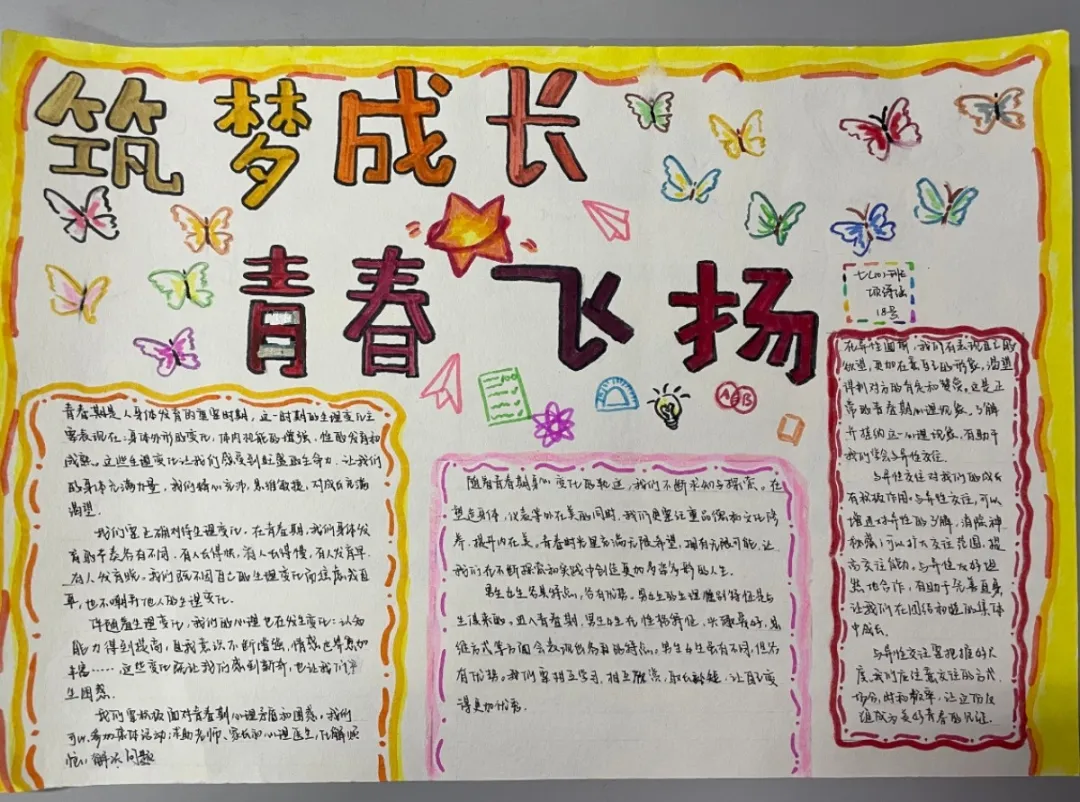 筑梦成长
青春飞扬
七(10)班
18号
青春期是人身体发育的重要时期,这一时期的生理变化主
要表现在:身体外形的变化,体内机能的增强,性的发育和
成熟。这些生理变化让我们感受到旺盛的生命力,让我们
的身体充满力量,我们精心充沛,思维敏捷,对成长充满
渴望。
我们要正确对待生理变化。在青春期,我们身体发
育的节奏各有不同,有人长得快,有人长得慢,有人发育早,
有人发育晚。我们既不因自己的生理变化而焦虑或自
卑,也不嘲弄他人的生理变化。
伴随着生理变化,我们的心理也在发生变化:认知
能力得到提高,自我意识不断增强,情感世界愈加
丰富……这些变化既让我们感到新奇,也让我们产
生困惑。
我们要积极面对青春期心理矛盾和困惑。我们
可以:参加集体活动;求助老师、家长和心理医生,化解烦
恼,解决问题
随着青春期身心变化的轨迹,我们不断求知与探索。在
塑造身体、仪表等外在美的同时,我们更要注重品德和文化修
养,提升内在美。青春时光里充满无限希望,拥有无限可能,让
我们在不断探索和实践中创造更加多姿多彩的人生。
男生女生各具特点,各有优势。男女生的生理性别特征是与
生俱来的。进入青春期,男生女生在性格特征、兴趣爱好、思
维方式等方面会表现出各自的特点。男生女生虽有不同,但各
有优势。我们要相互学习,相互欣赏,取长补短,让自己变
得更加优秀。
A B
100
在异性面前,我们有表现自己的
欲望,更加在意自己的形象,渴望
得到对方的肯定和赞赏。这是正
常的青春期心理现象,了解
并接纳这一心理现象,有助于
我们学会与异性交往。
与异性交往对我们的成长
有积极作用。与异性交往,可以
增进对异性的了解,消除神
秘感;可以扩大交往范围,提
高交往能力。与异性友好坦
然地合作,有助于完善自身,
让我们在团结和睦的集体
中成长。
与异性交往要把握好尺
度。我们应注意交往的方式、
场合、时机和频率,让交往友
谊成为美好青春的见证。